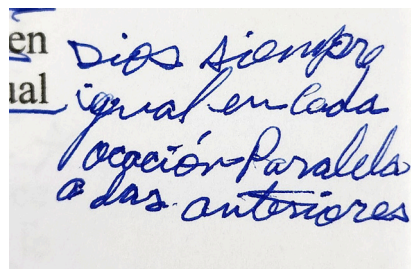 en
ual
Dios siempre
igual en cada
ocación-Paralela
a las anteriores